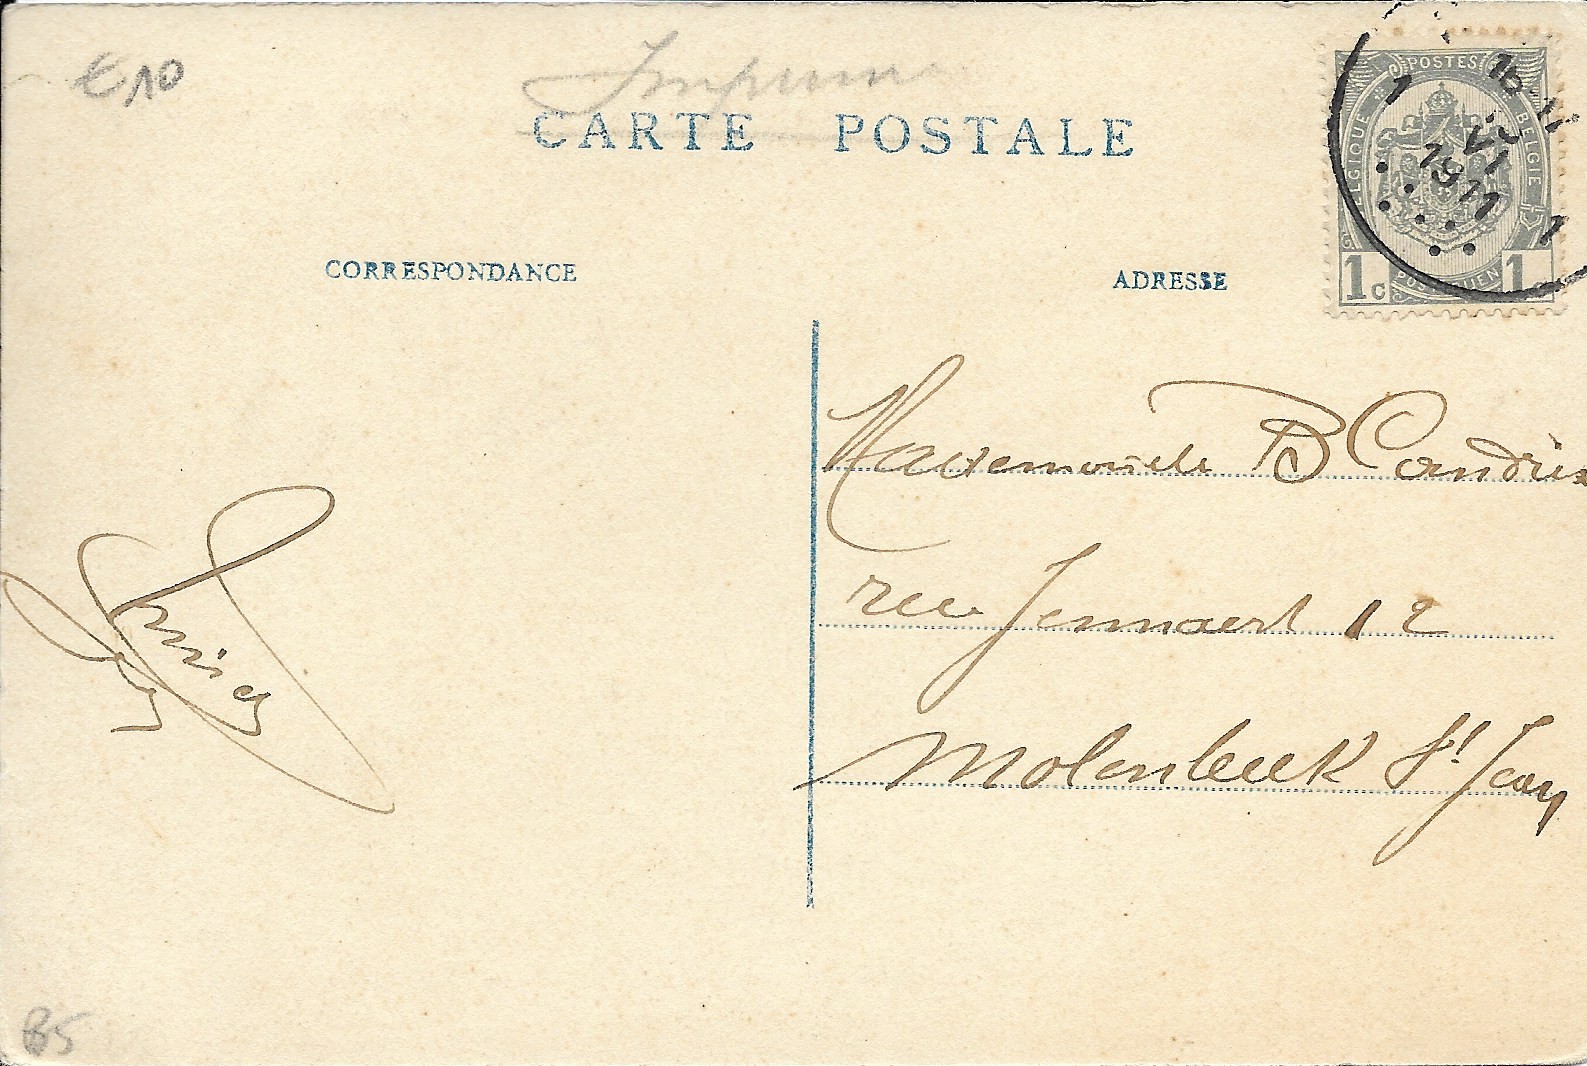 €10
CARTE POSTALE
POSTES
BELGIQUE
BELGIE
1c
POSTERIJEN
1c
1
VI
1911
1
CORRESPONDANCE
ADRESSE
Mademoiselle B Candries
rue Jennart 12
Molenbeek St Jean
B5